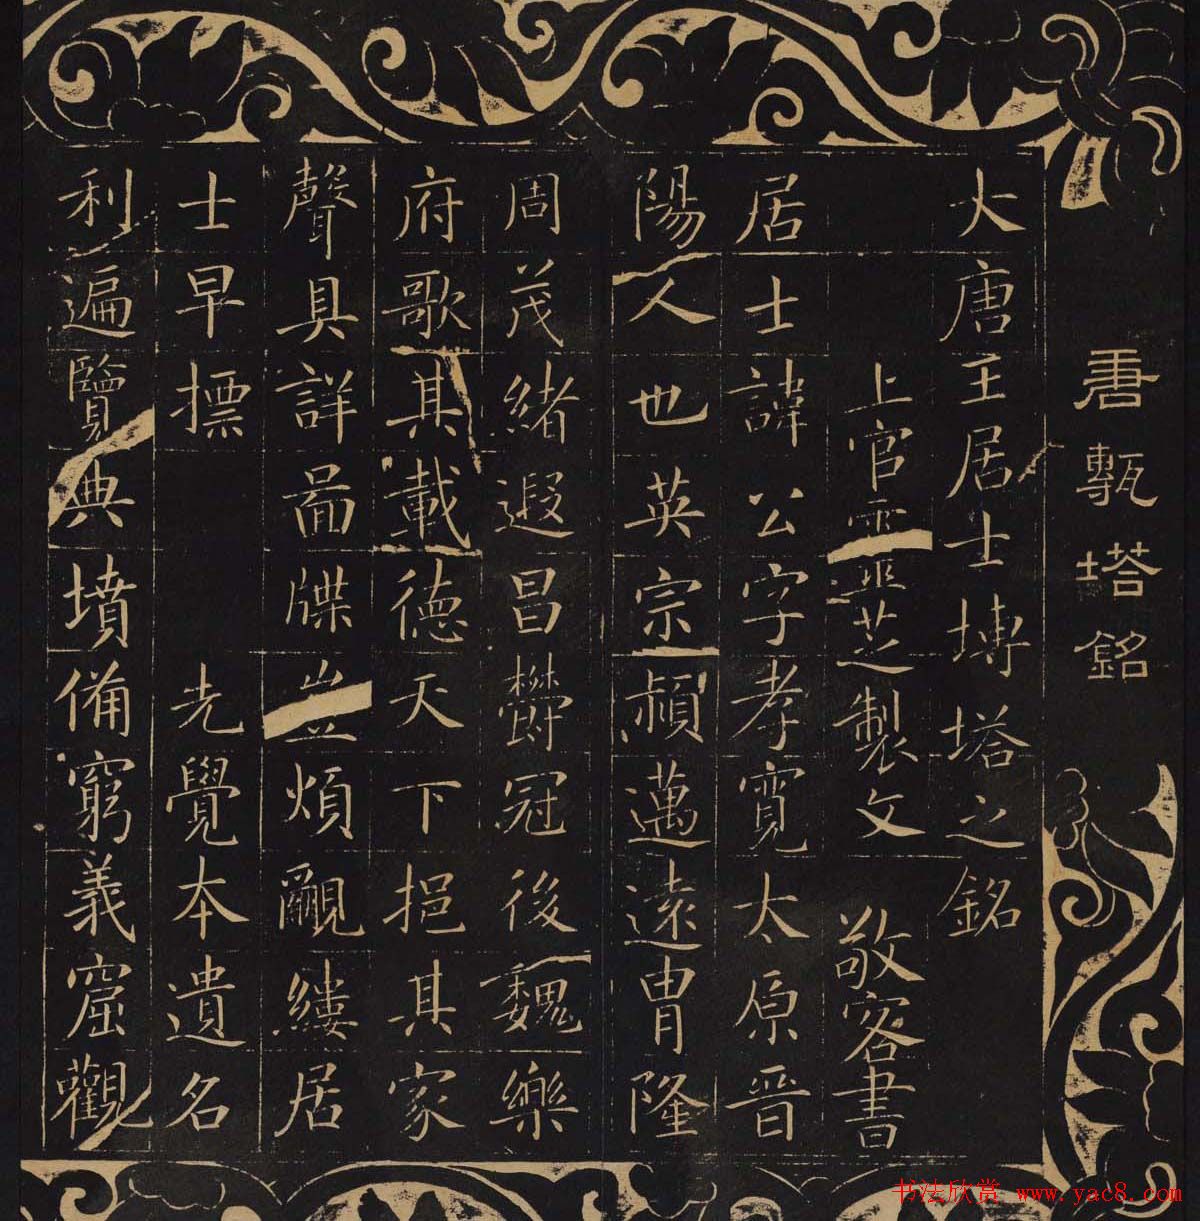 唐甎塔銘
大唐王居士塼塔之銘
上官靈芝製文 敬客書
居士諱公字孝寬太原晉
陽人也英宗穎邁遠冑隆
周茂緒遐昌欝冠後魏樂
府歌其載德天下挹其家
聲具詳啚牒豈煩覼縷居
士早摽 先覺本遺名
利遍覽典墳備窮義窟觀
书法欣赏 www.yac8.com